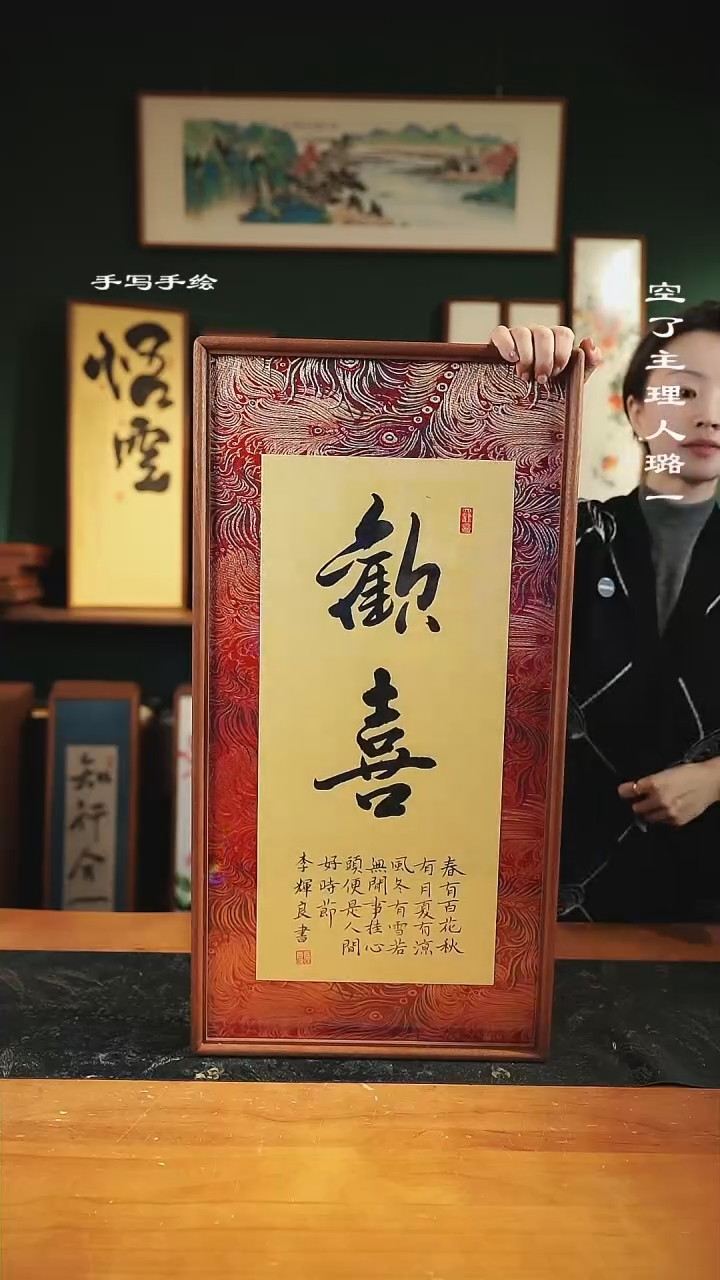 手写手绘
空了主理人璐一
悟空
歡
喜
春有百花秋
有月夏有涼
風冬有雪若
無閒事挂心
頭便是人間
好時節
李輝良書
知行合一